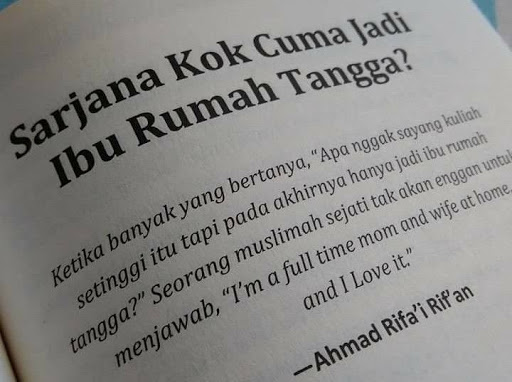 Sarjana Kok Cuma Jadi
Ibu Rumah Tangga?
Ketika banyak yang bertanya, “Apa nggak sayang kuliah
setinggi itu tapi pada akhirnya hanya jadi ibu rumah
tangga?” Seorang muslimah sejati tak akan enggan untuk
menjawab, “I’m a full time mom and wife at home,
and I Love it.”
—Ahmad Rifa’i Rif’an